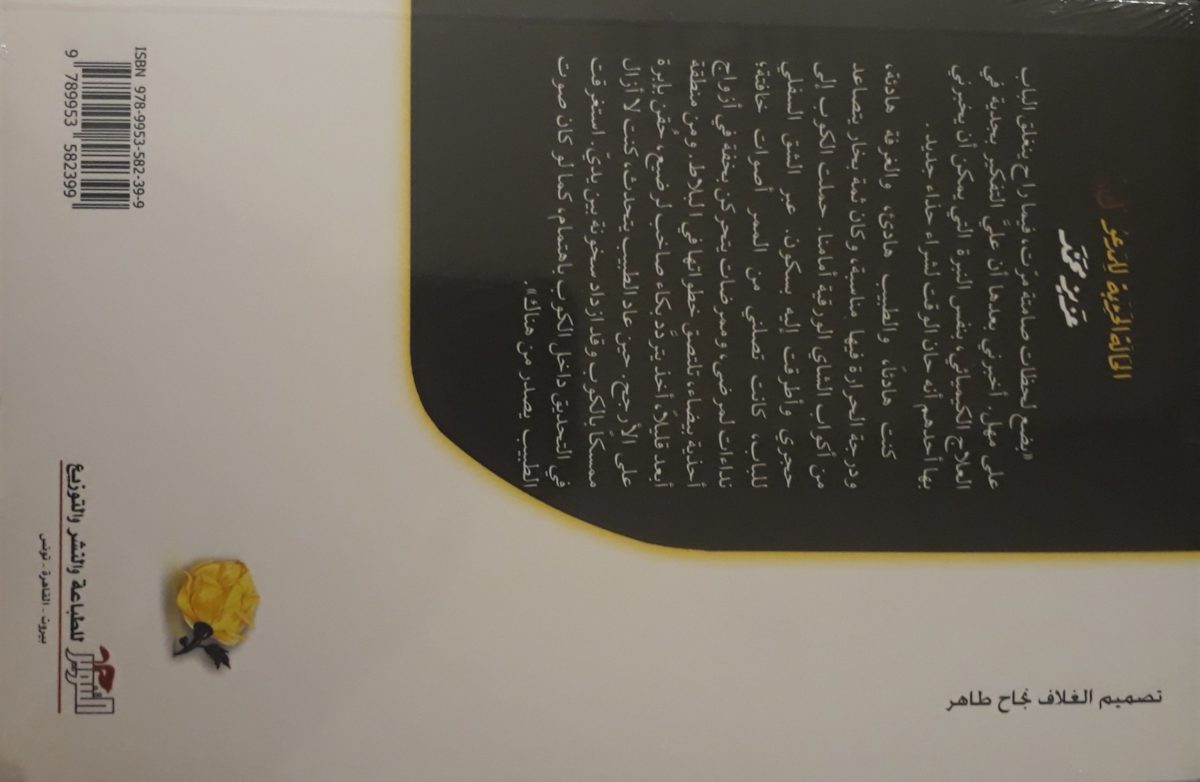 الحالة الحرجة للمدعو
عزيز محمد
«بضع لحظات صامتة مرّت، فيما راح ينغلق الباب
على مهل. أخبرني بعدها أن عليّ التفكير بجدية في
العلاج الكيميائي، بنفس النبرة التي يمكن أن يخبرني
بها أحدهم أنه حان الوقت لشراء حذاء جديد.
كنت هادئاً، والطبيب هادئ، والغرفة هادئة،
ودرجة الحرارة فيها مناسبة، وكان ثمة بخار يتصاعد
من أكواب الشاي الورقية أمامنا. حملت الكوب إلى
حجري وأطرقت إليه بسكون. عبر الشق السفلي
للباب، كانت تصلني من الممر أصوات خافتة؛
نداءات لمرضى، وممرضات يتحركن بخفة في أزواج
أحذية بيضاء، تلتصق خطواتها في البلاط. ومن منطقة
أبعد قليلاً، أخذ يتردد بكاء صاخب لرضيع، حُقن بإبرة
على الأرجح. حين عاد الطبيب يتحدث، كنت لا أزال
ممسكاً بالكوب وقد ازداد سخونة بين يديّ. استغرقت
في التحديق داخل الكوب باهتمام، كما لو كان صوت
الطبيب يصدر من هناك».
تصميم الغلاف نجاح طاهر
التنوير للطباعة والنشر والتوزيع
بيروت - القاهرة - تونس
ISBN 978-9953-582-39-9
9 789953 582399